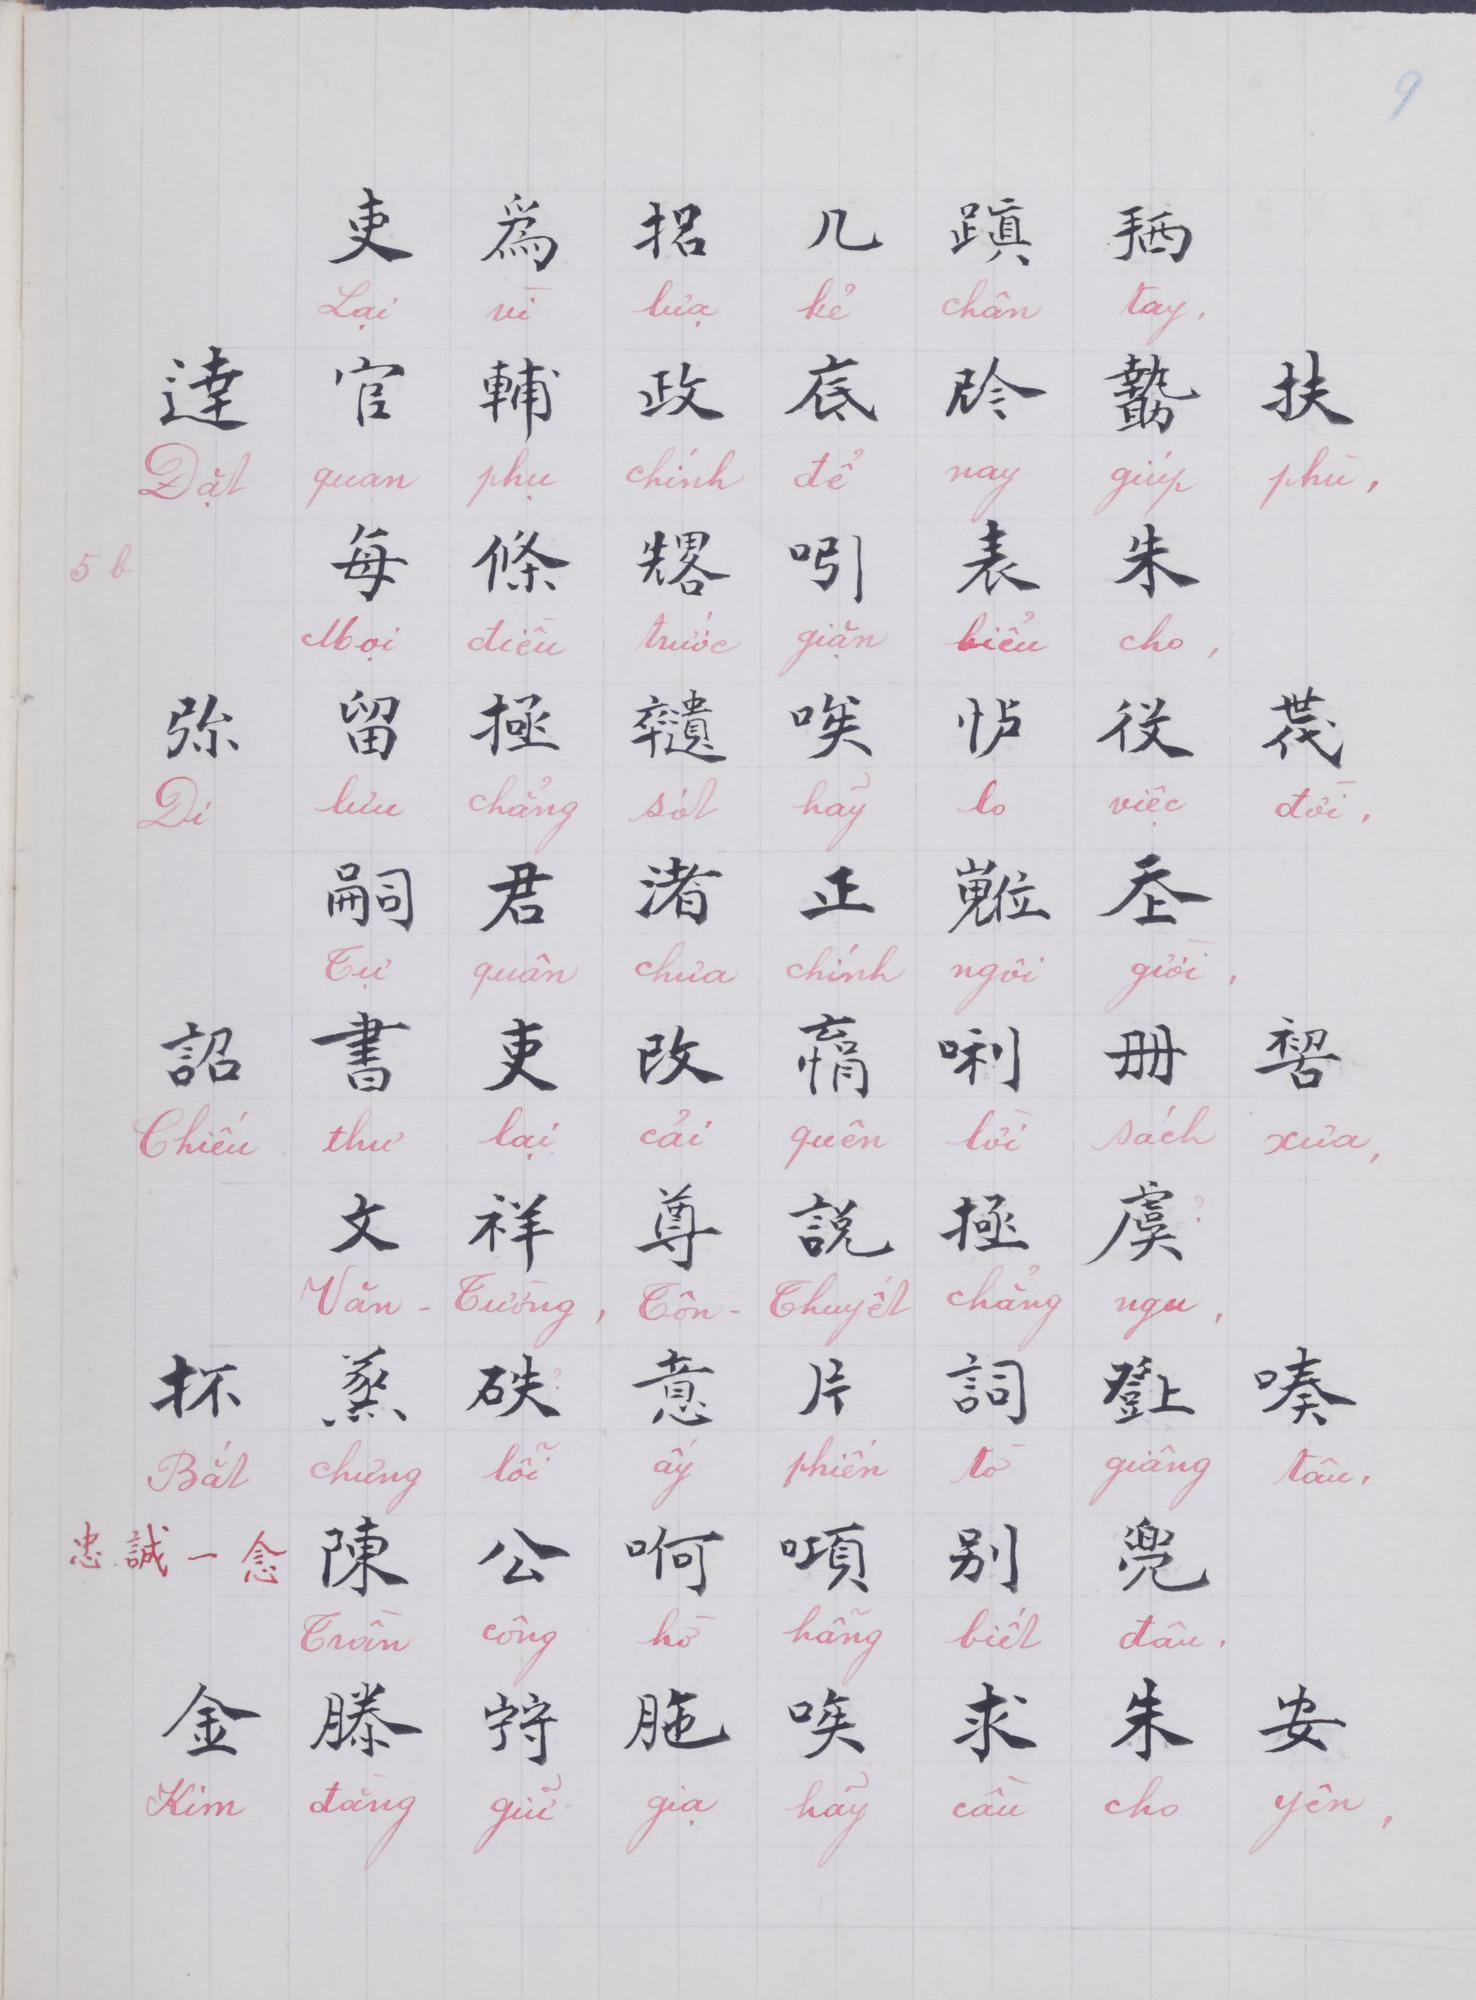 9
吏 爲 招 几 蹎 𢬣
Lại vì lựa kẻ chân tay.
達 官 輔 政 底 𫢩 𠢞 扶
Đặt quan phụ chính để nay giúp phù,
5b
每 條 𠓀 吲 表 朱
Mọi điều trước giặn biểu cho,
弥 留 極 𡄎 唉 𢗼 役 茂
Di lưu chẳng sót hãy lo việc đời,
嗣 君 渚 正 𡾵 𡗶
Tự quân chưa chính ngôi giời,
詔 書 吏 改 𢞂 唎 册 𠸗
Chiếu thư lại cải quên lời sách xưa,
文 祥 尊 説 極 虞 ?
Văn-Tường, Tôn-Thuyết chẳng ngu,
抔 蒸 砆 意 片 詞 𤼸 嗪
Bắt chưng lỗi ấy phiến tờ giâng tâu.
忠 誠 一 念 陳 公 啊 㖼 别 兠
Trần công hờ hẵng biết đâu.
金 滕 𡨺 胣 唉 求 朱 安
Kim đằng giữ giạ hãy cầu cho yên,